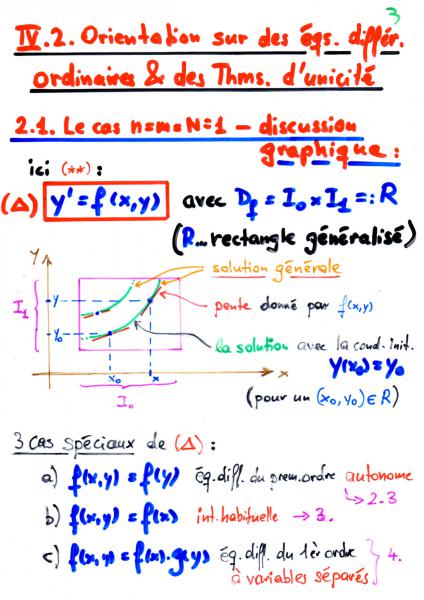 3
IV.2. Orientation sur des éqs. différ.
ordinaires & des Thms. d'unicité
2.1. Le cas n=m=N=1 – discussion
graphique :
ici (**) :
(Δ) y' = f(x,y) avec D_f = I_0 × I_1 =: R
(R... rectangle généralisé)
y
solution générale
I_1
y
pente donné par f(x,y)
y_0
la solution avec la cond. init.
y(x_0) = y_0
x_0 x x
I_0
(pour un (x_0, y_0) ∈ R)
3 cas spéciaux de (Δ) :
a) f(x,y) = f(y) éq. diff. du prem. ordre autonome
↳ 2-3
b) f(x,y) = f(x) int. habituelle → 3.
c) f(x,y) = f(x)·g(y) éq. diff. du 1èr ordre } 4.
à variables séparés